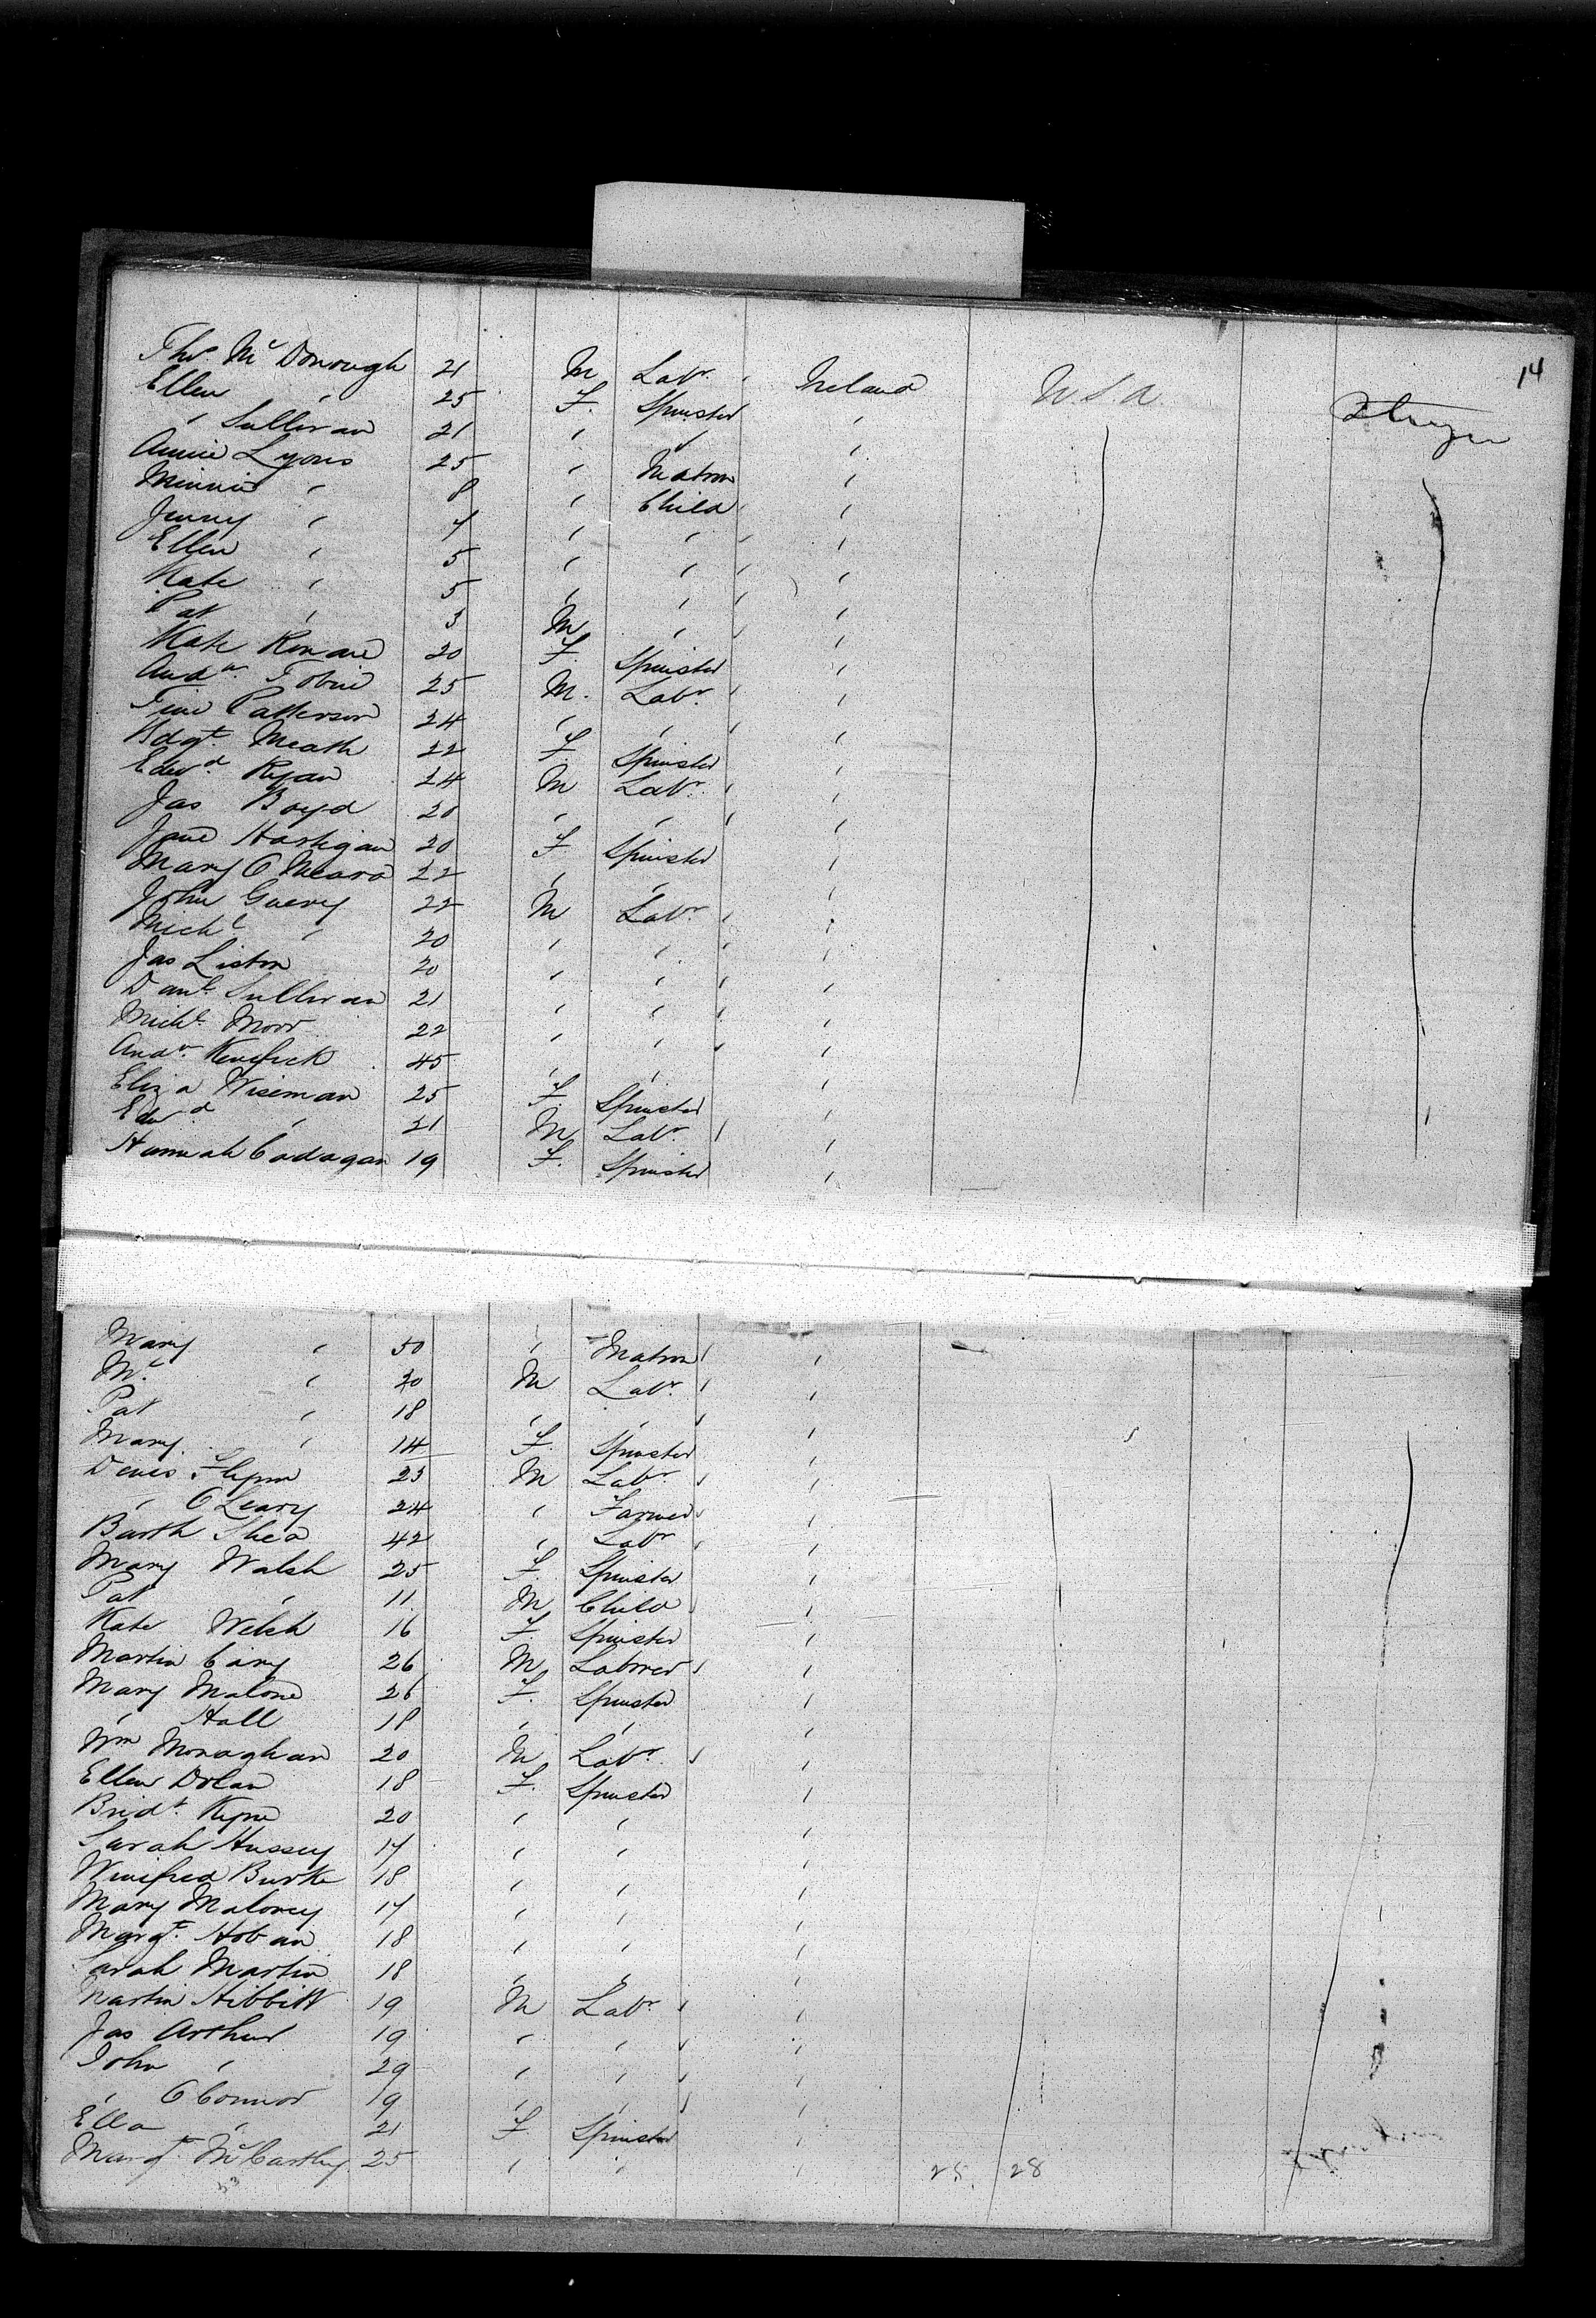 14
Thos. McDonough 21 M Labr. Ireland U.S.A.
Ellen " 25 F. Spinster "
" Sullivan 21 " " "
Annie Lyons 25 " Matron "
Minnie " 8 " Child "
Jenny " 7 " " "
Ellen " 5 " " "
Kate " 5 " " "
Pat " 3 M " "
Kate 20 F. Spinster "
Andw. Tobin 25 M. Labr. "
Tim Patterson 24 " " "
Bdgt. Meath 22 F. Spinster "
Edwd. Ryan 24 M Labr. "
Jas Boyd 20 " " "
Jane Hartigan 20 F Spinster "
Mary O Meara 22 " " "
John Guery 22 M Labr. "
Michl. " 20 " " "
Jas Liston 20 " " "
Danl. Sullivan 21 " " "
Michl. 22 " " "
Andw. Kenefick 45 " " "
Eliza Wiseman 25 F. Spinster "
Edwd " 21 M Labr. "
Hannah Cadagan 19 F. Spinster "
Mary " 50 " Matron "
" M Labr. "
Pat " 18 " " "
Mary " 14 F. Spinster "
Denis Flynn 23 M Labr "
" O Leary 24 " Farmer "
Barth Shea 42 " Labr "
Mary Walsh 25 F. Spinster "
Pat " 11 M Child "
Kate Welsh 16 F Spinster "
Martin Cary 26 M Labourer "
Mary Malone 26 F. Spinster "
" Hall 18 " " "
Wm Monaghan 20 M Labr. "
Ellen Dolan 18 F. Spinster "
Bridt. Kyne 20 " " "
Sarah Hussey 17 " " "
Winifred Burke 18 " " "
Mary Maloney 17 " " "
Margt. Hoban 18 " " "
Sarah Martin 18 " " "
Martin Hibbitt 19 M Labr "
Jas Arthur 19 " " "
John " 29 " " "
" O Connor 19 " " "
Ella " 21 F. Spinster "
Margt. McCarthy 25 " " "
25 28
53